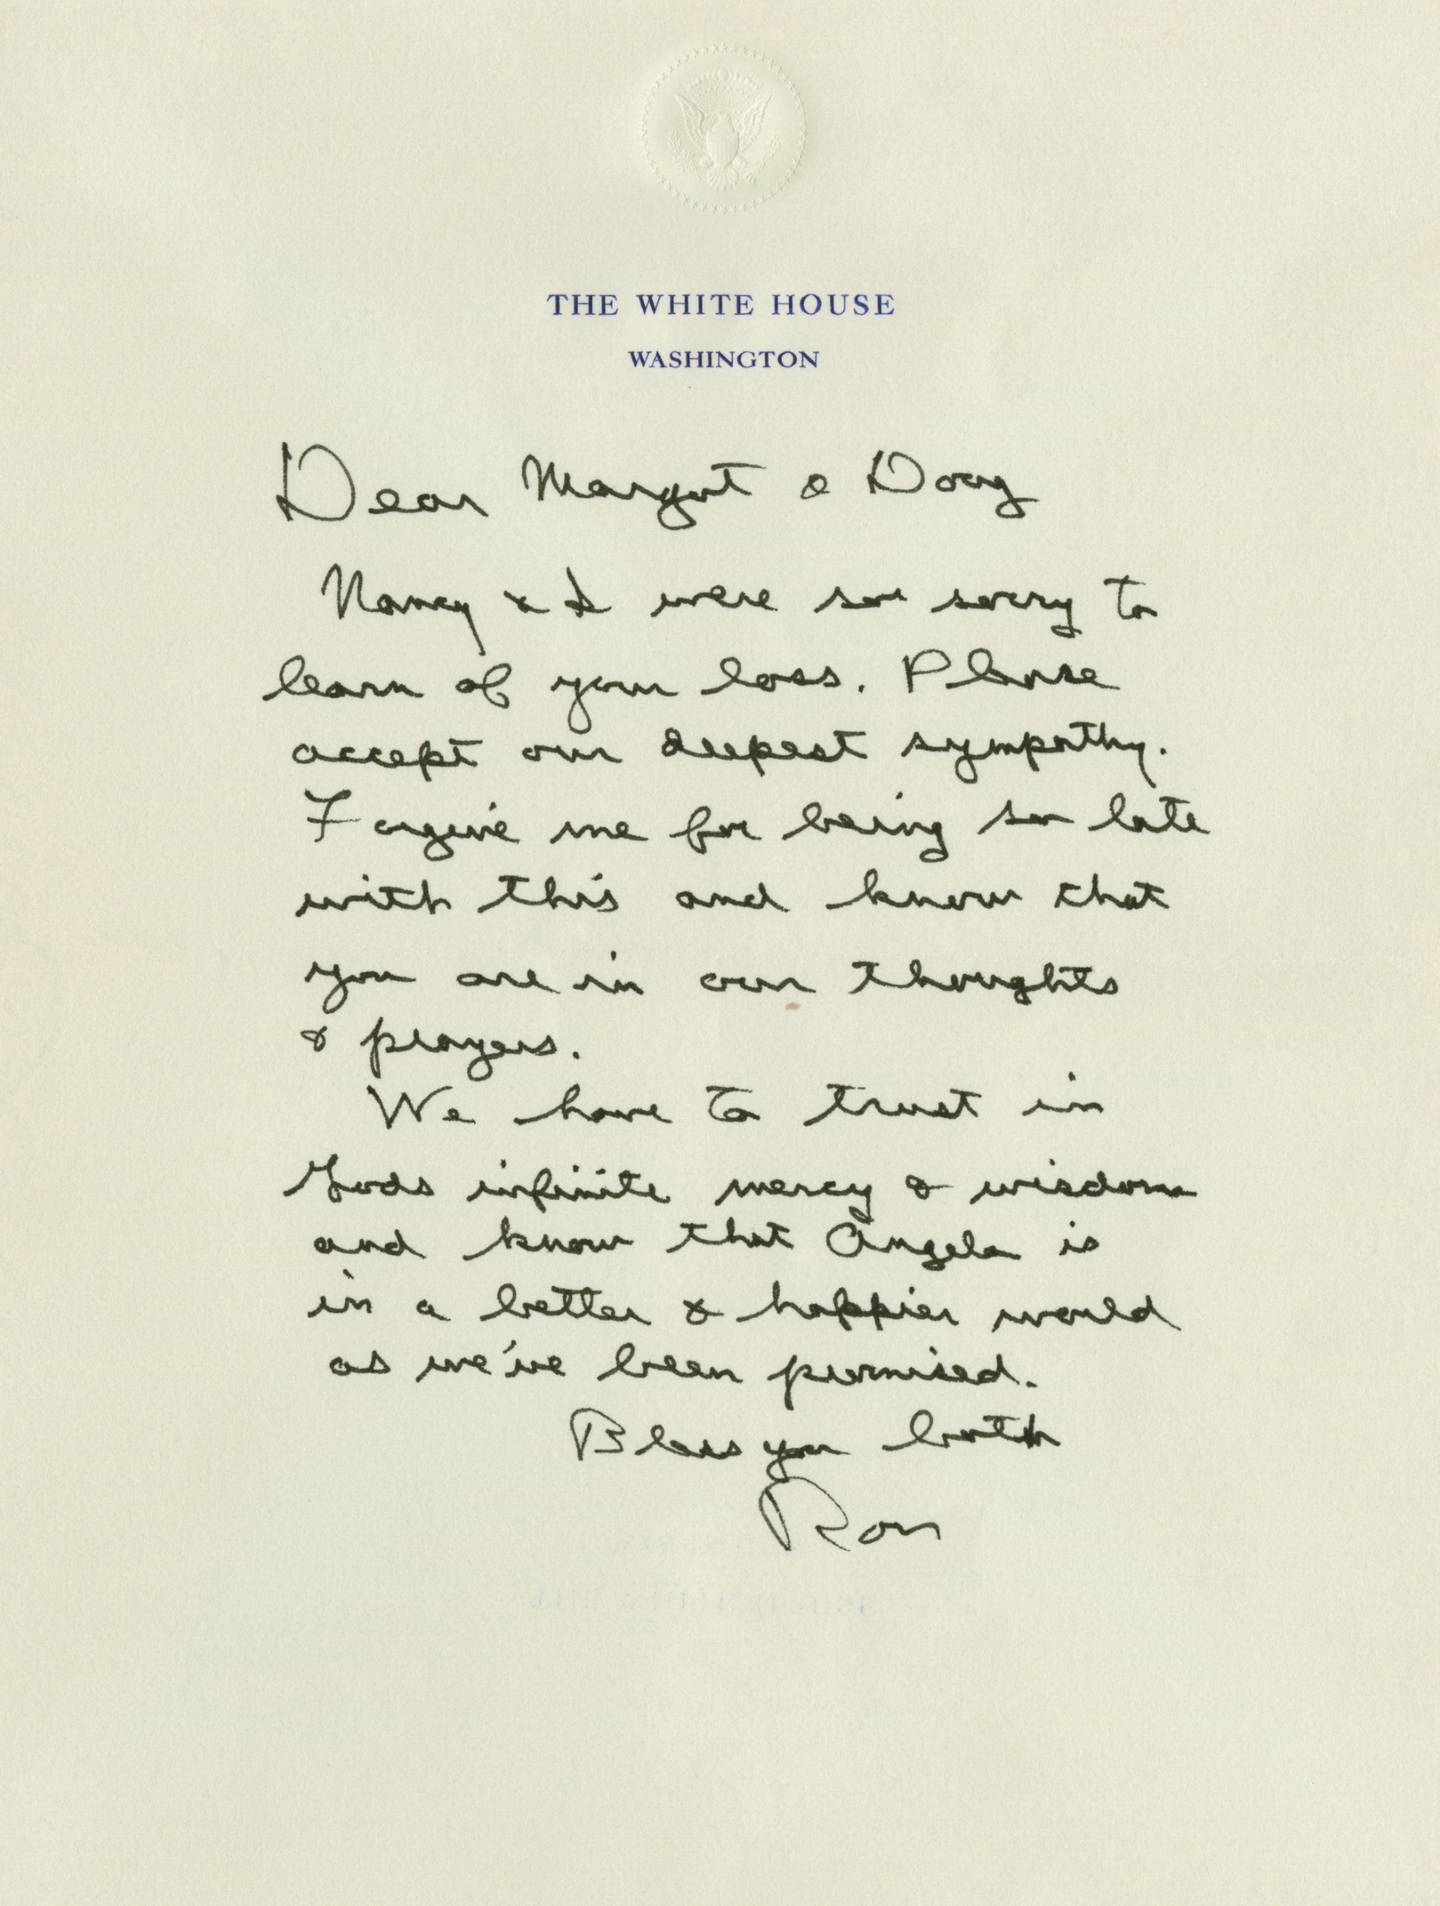 THE WHITE HOUSE
WASHINGTON
Dear Margot & Doug
Nancy & I were so sorry to
learn of your loss. Please
accept our deepest sympathy.
Forgive me for being so late
with this and know that
you are in our thoughts
& prayers.
We have to trust in
Gods infinite mercy & wisdom
and know that Angela is
in a better & happier world
as we've been promised.
Bless you both
Ron